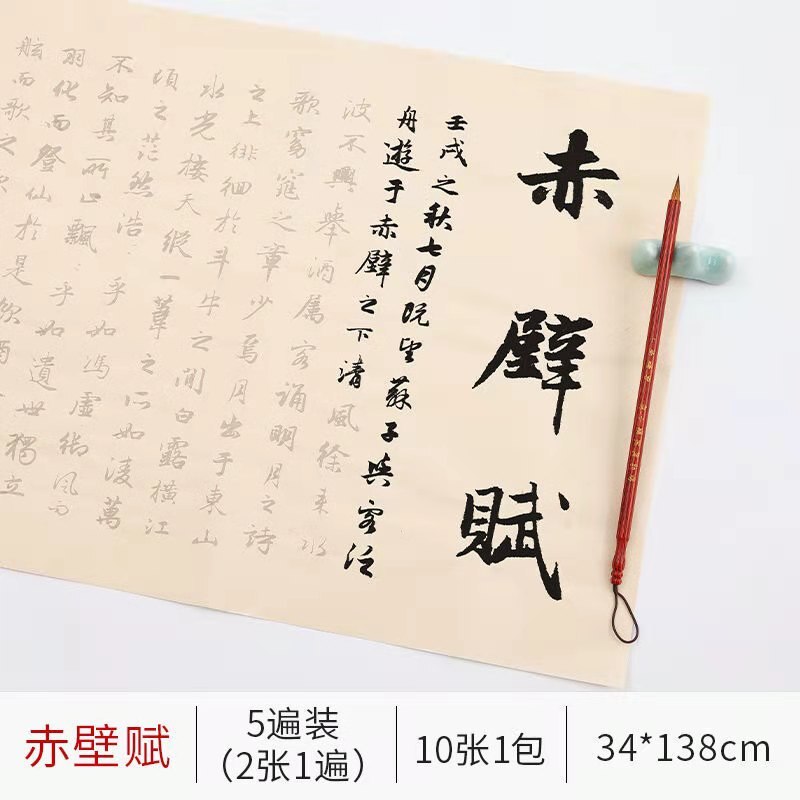 赤壁賦
壬戌之秋七月既望蘇子與客泛
舟遊于赤壁之下清風徐來水
波不興舉酒属客誦明月之詩
歌窈窕之章少焉月出于東山
之上徘徊於斗牛之間白露橫江
水光接天縱一葦之所如凌萬
頃之茫然浩:乎如馮虛御風而
不知其所止飄:乎如遺世獨立
羽化而登仙於是飲酒
舷而歌之歌
赤壁赋
5遍装
（2张1遍）
10张1包
34*138cm